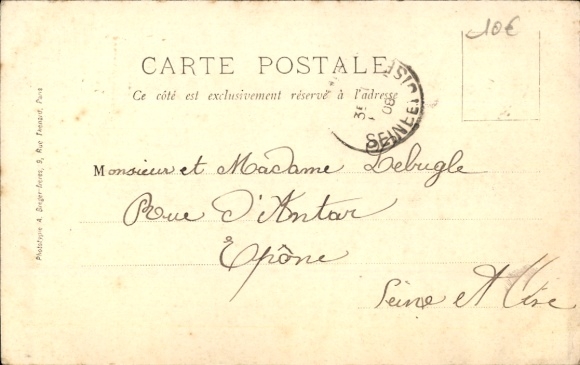 10€
CARTE POSTALE
Ce côté est exclusivement réservé à l'adresse
SEINE ET OISE
08
Monsieur et Madame Lebugle
Rue d'Antar
Epône
Seine et Oise
Phototypie A. Breger frères, 9, Rue Thénard, Paris